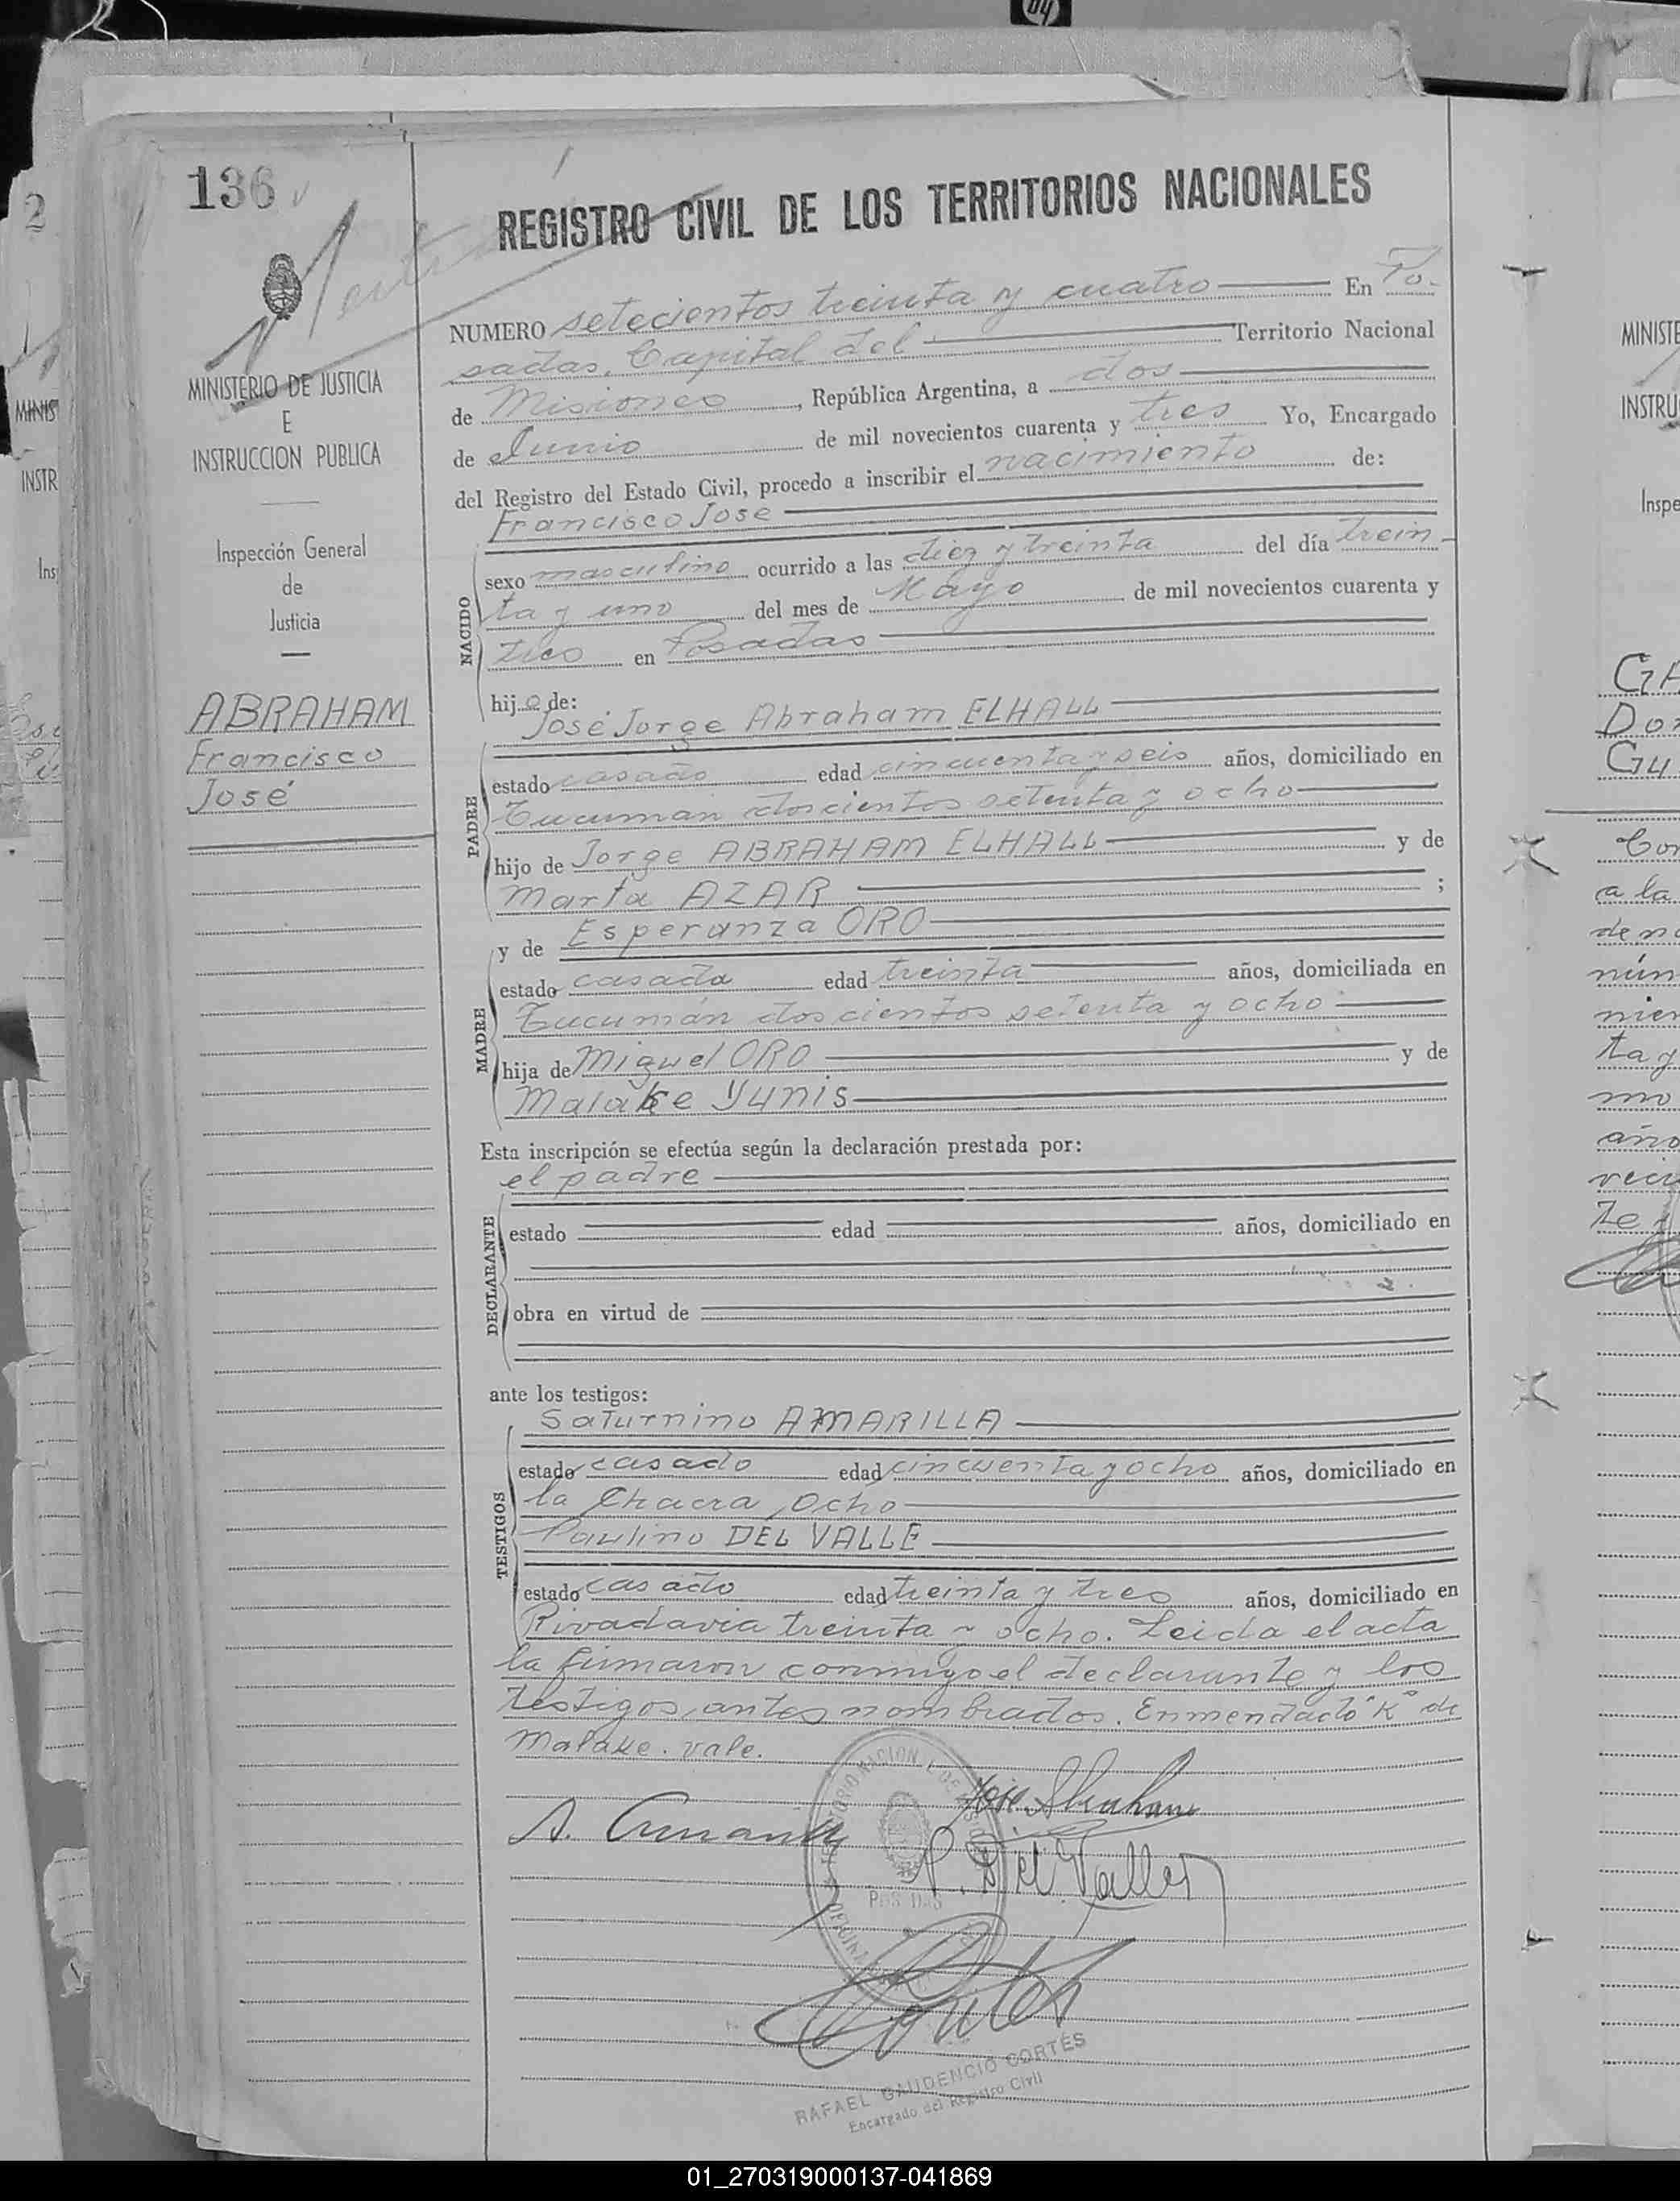 136
REGISTRO CIVIL DE LOS TERRITORIOS NACIONALES
MINISTERIO DE JUSTICIA
E
INSTRUCCION PUBLICA
Inspección General
de
Justicia
ABRAHAM
Francisco
José
NUMERO setecientos treinta y cuatro En Po-
sadas, Capital del Territorio Nacional
de Misiones, República Argentina, a dos
de Junio de mil novecientos cuarenta y tres Yo, Encargado
del Registro del Estado Civil, procedo a inscribir el nacimiento de:
Francisco Jose
NACIDO
sexo masculino ocurrido a las diez y treinta del día trein-
ta y uno del mes de Mayo de mil novecientos cuarenta y
tres en Posadas
hijo de:
José Jorge Abraham ELHALL
PADRE
estado casado edad cincuenta y seis años, domiciliado en
Tucumán doscientos setenta y ocho
hijo de Jorge ABRAHAM ELHALL y de
Marta AZAR ;
y de Esperanza ORO
MADRE
estado casada edad treinta años, domiciliada en
Tucumán doscientos setenta y ocho
hija de Miguel ORO y de
Malake Yunis
Esta inscripción se efectúa según la declaración prestada por:
el padre
DECLARANTE
estado edad años, domiciliado en
obra en virtud de
ante los testigos:
Saturnino AMARILLA
TESTIGOS
estado casado edad cincuenta y ocho años, domiciliado en
la Chacra Ocho
Paulino DEL VALLE
estado casado edad treinta y tres años, domiciliado en
Rivadavia treinta y ocho. Leida el acta
la firmaron conmigo el declarante y los
testigos antes nombrados. Enmendado "K" de
Malake. vale.
José Abraham
P. Del Valle
POSADAS
Cortés
RAFAEL GAUDENCIO CORTÉS
Encargado del Registro Civil
01_270319000137-041869